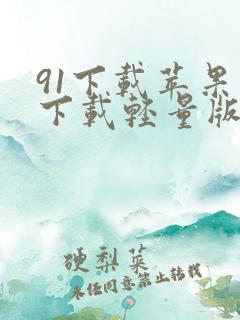 91下载苹果
下载轻量版
硬梨菜
未经同意禁止转载